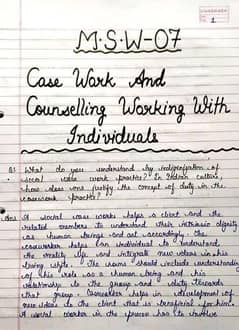 1
M.S.W-07
Case Work And
Counselling Working With
Individuals
What do you understand by indigenization of
social case work practice? In Indian culture,
how does one justify the concept of duty in the
casework practice?
Ans A social case worker helps a client and the
related members to understand their intrinsic dignity
as human beings and act accordingly, the
caseworker helps an individual to understand
the reality up and integrate new values in his
living style. The worker should include understanding
of his role as a human being and his
relationship to the group and duty towards
that group. Caseworker helps in development of
new ideas to the client that is beneficial for him.
A social worker in the process has to involve